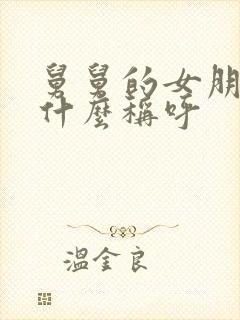 舅舅的女朋
什麼稱呼
溫金良